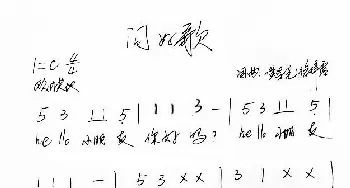 问好歌
1=C 4/4
欢快地 词曲:
5 3 1 1 5 | 1 1 3 - | 5 3 1 1 5 |
hello 小朋友 你好吗? hello 小朋友
1 1 1 - | 5 3 x x | 3 1 x x |